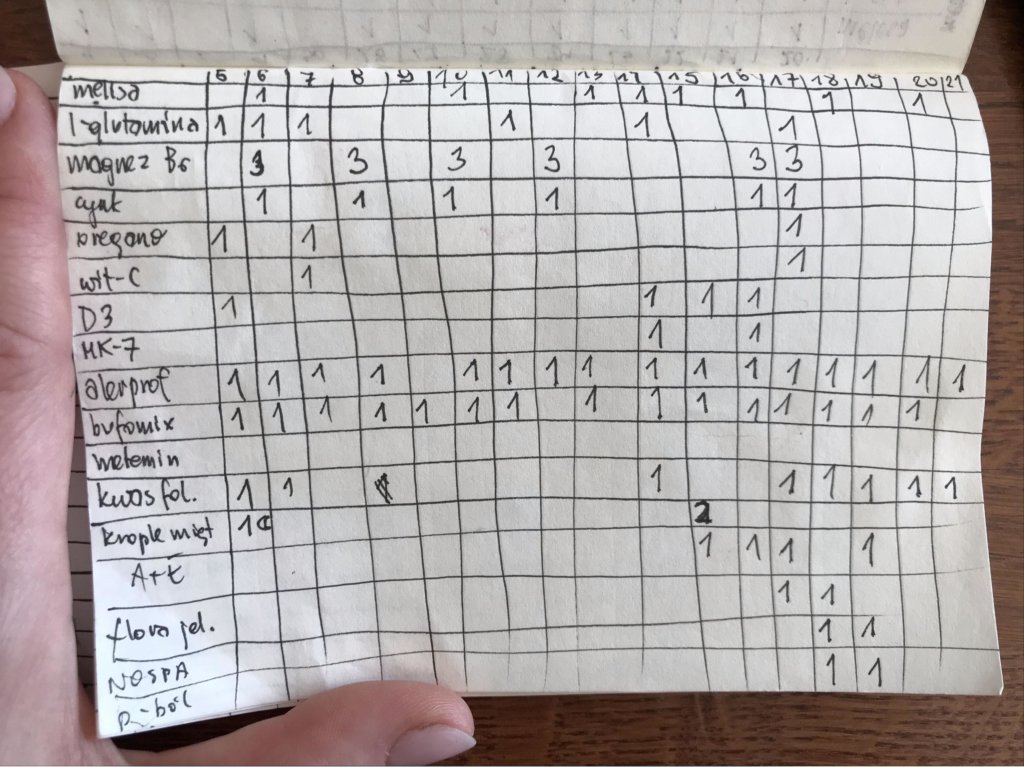 5 6 7 8 9 10 11 12 13 14 15 16 17 18 19 20 21
melisa 1 1 1 1 1 1 1 1
l-glutamina 1 1 1 1 1 1
magnez B6 3 3 3 3 3 3
cynk 1 1 1 1 1 1
oregano 1 1 1
wit-C 1 1
D3 1 1 1 1
MK-7 1 1
alerprof 1 1 1 1 1 1 1 1 1 1 1 1 1 1 1 1
bufomix 1 1 1 1 1 1 1 1 1 1 1 1 1 1 1
metemin
kwas fol. 1 1 1 1 1 1 1 1
krople mięt 1 2
A+E 1 1 1 1
flora jel. 1 1
NOSPA 1 1
p-ból 1 1